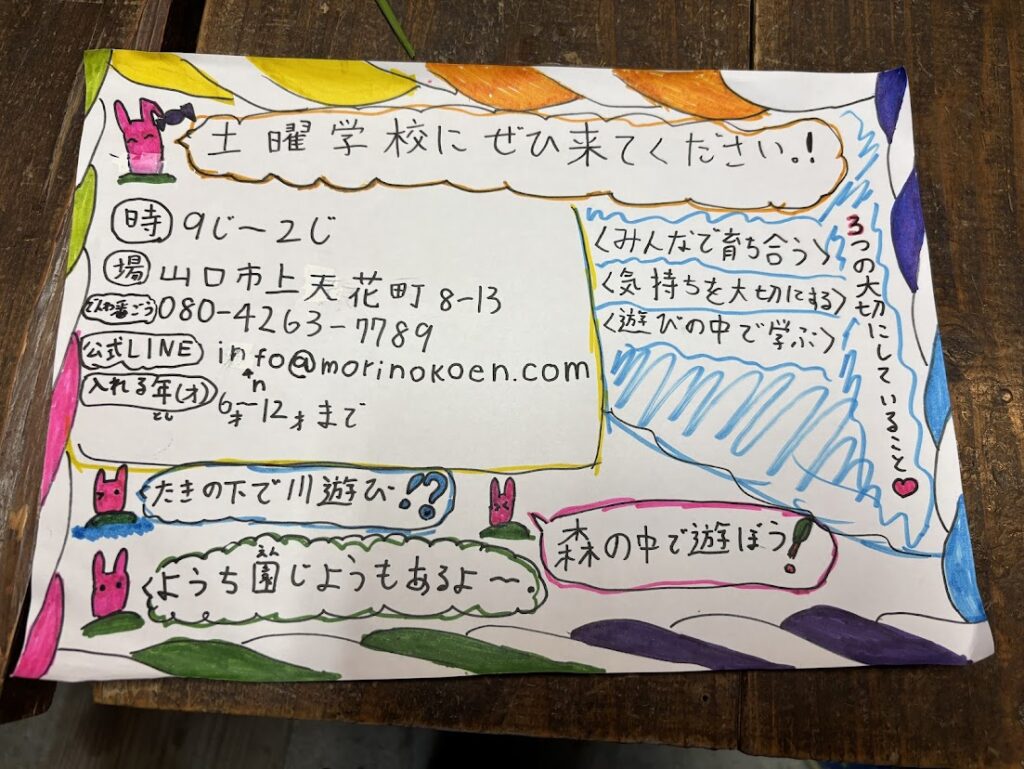 土曜学校にぜひ来てください。!
時 9じ〜2じ
場 山口市上天花町8-13
でんわ番ごう 080-4263-7789
公式LINE info@morinokoen.com
n
入れる年(才) 6才〜12才まで
とし
3つの大切にしていること
〈みんなで育ち合う〉
〈気持ちを大切にする〉
〈遊びの中で学ぶ〉
たきの下で川遊び!?
森の中で遊ぼう!
えん
ようち園じようもあるよ〜。